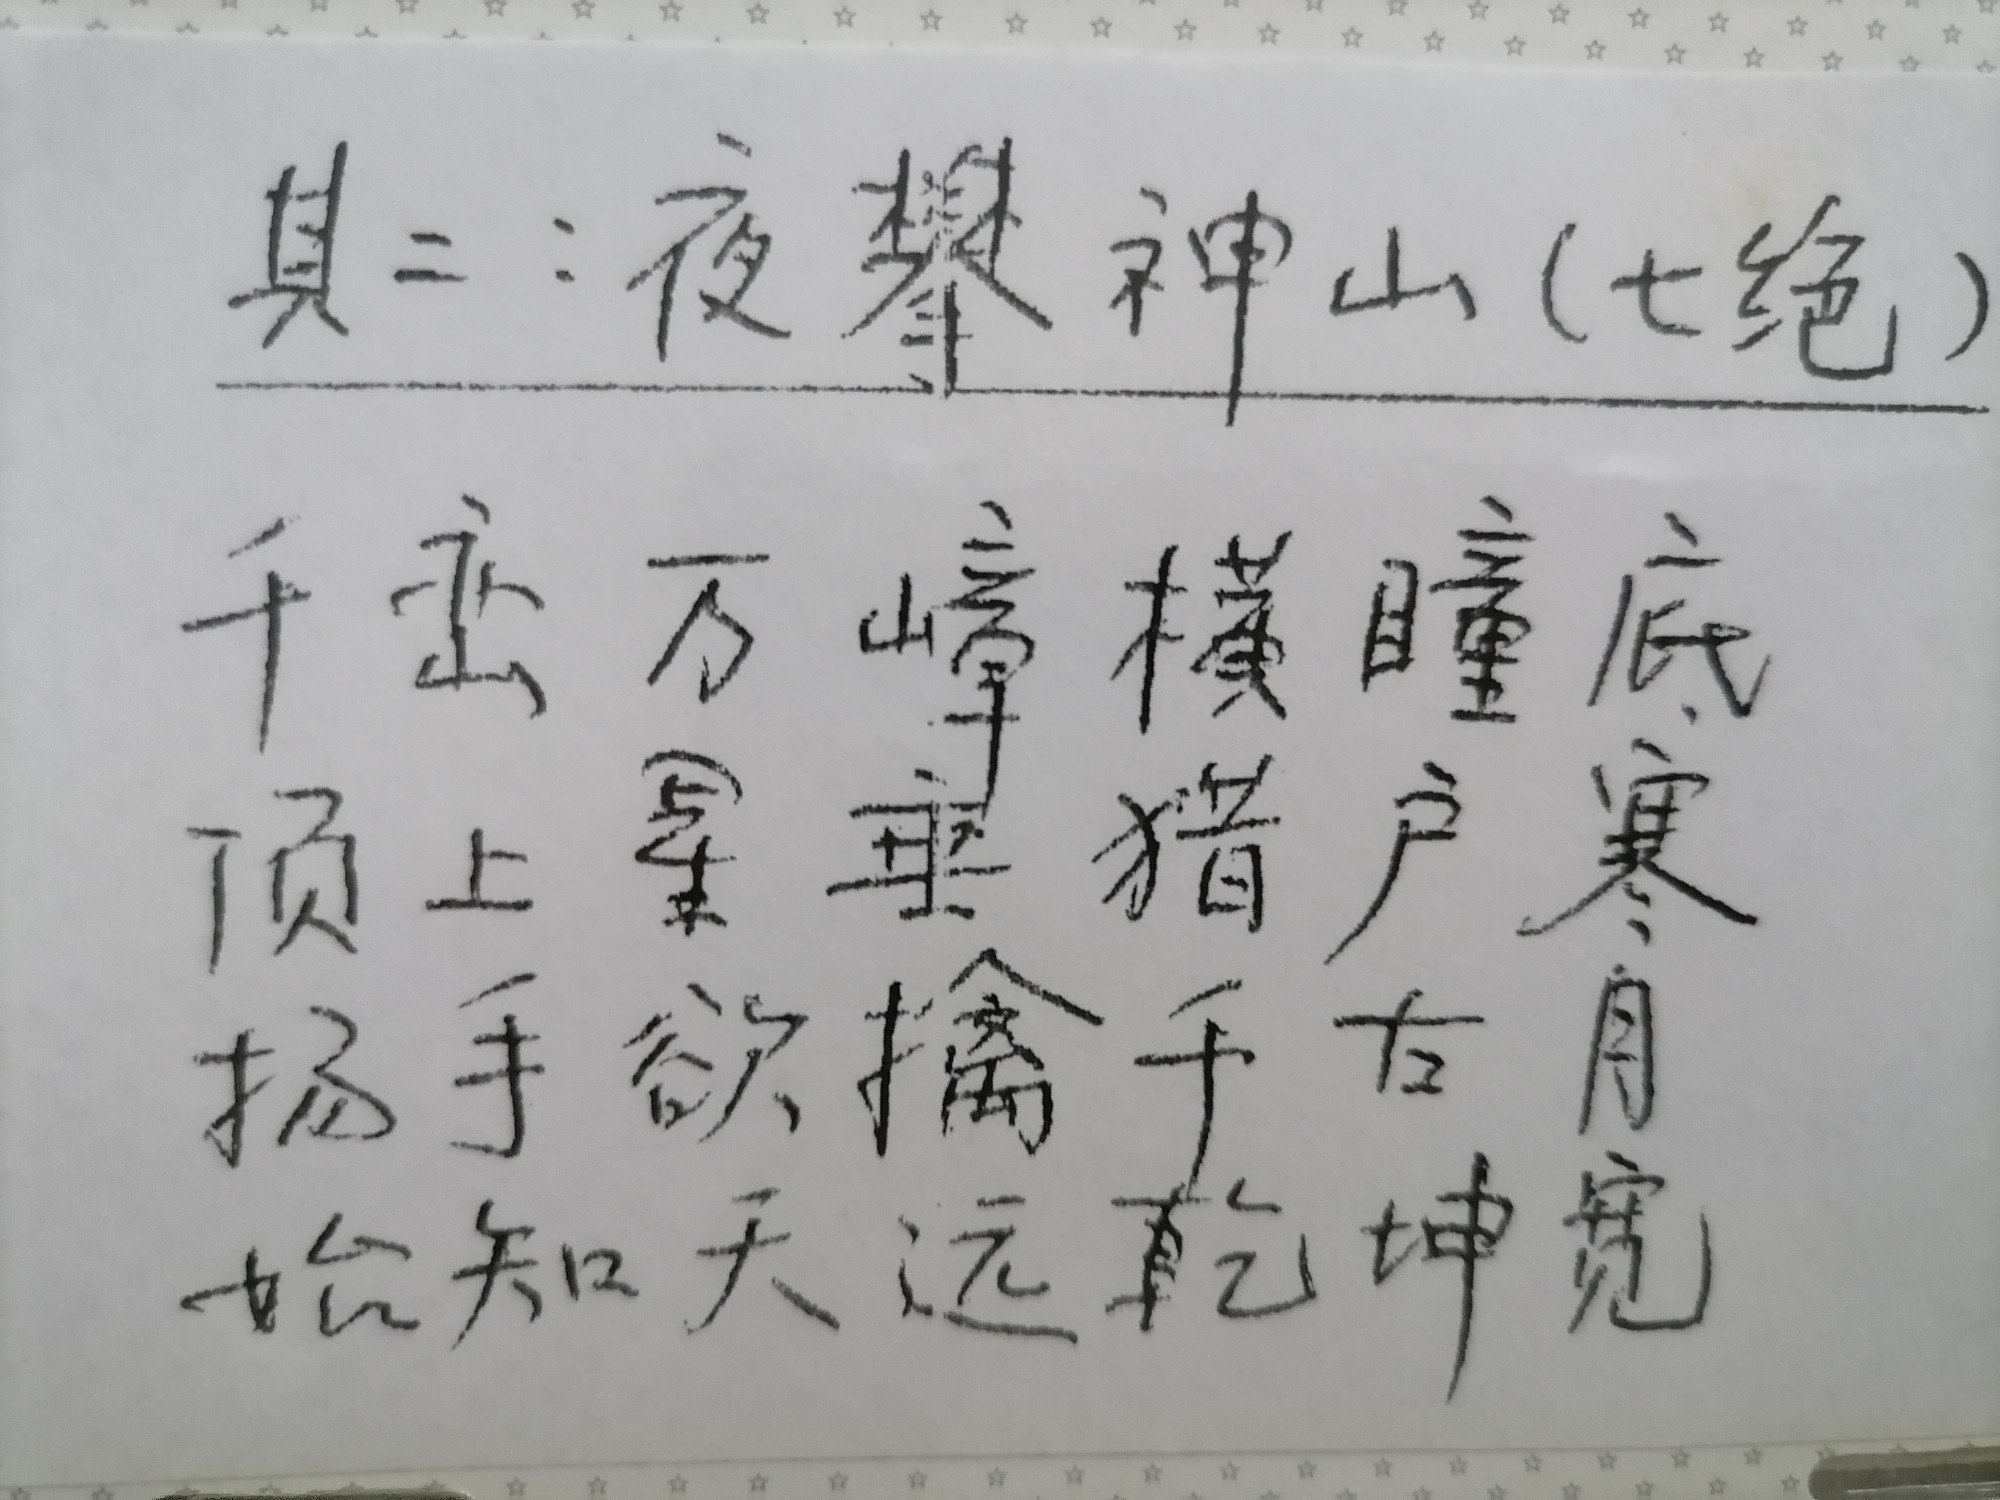 其二：夜攀神山（七绝）
千峦万嶂横瞳底
顶上星垂猎户寒
扬手欲擒千古月
始知天远乾坤宽